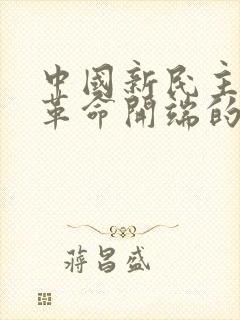 中國新民主
革命開端的
蔣昌盛